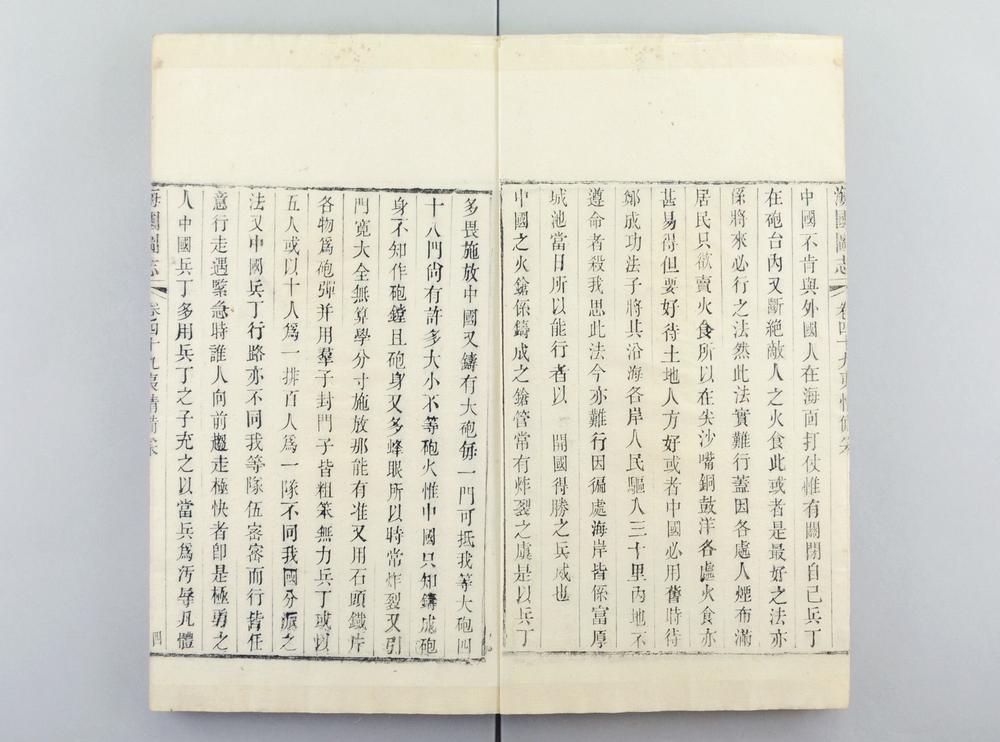 海國圖志 卷四十九夷情備采
中國不肯與外國人在海面打仗惟有關閉自己兵丁
在砲台內又斷絕敵人之火食此或者是最好之法亦
係將來必行之法然此法實難行蓋因各處人煙布滿
居民只欲賣火食所以在尖沙嘴銅鼓洋各處火食亦
甚易得但要好待土地人方好或者中國必用舊時待
鄭成功法子將其沿海各岸人民驅入三十里內地不
遵命者殺我思此法今亦難行因徧處海岸皆係富厚
城池當日所以能行者以 開國得勝之兵威也
中國之火鎗係鑄成之鎗管常有炸裂之虞是以兵丁
多畏施放中國又鑄有大砲每一門可抵我等大砲四
十八門尙有許多大小不等砲火惟中國只知鑄成砲
身不知作砲膛且砲身又多蜂眼所以時常炸裂又引
門寬大全無算學分寸施放那能有准又用石頭鐵片
各物爲砲彈并用羣子封門子皆粗笨無力兵丁或以
五人或以十人爲一排百人爲一隊不同我國分派之
法又中國兵丁行路亦不同我等隊伍密密而行皆任
意行走遇緊急時誰人向前趨走極快者卽是極勇之
人中國兵丁多用兵丁之子充之以當兵爲汚辱凡體
海國圖志 卷四十九夷情備采 四